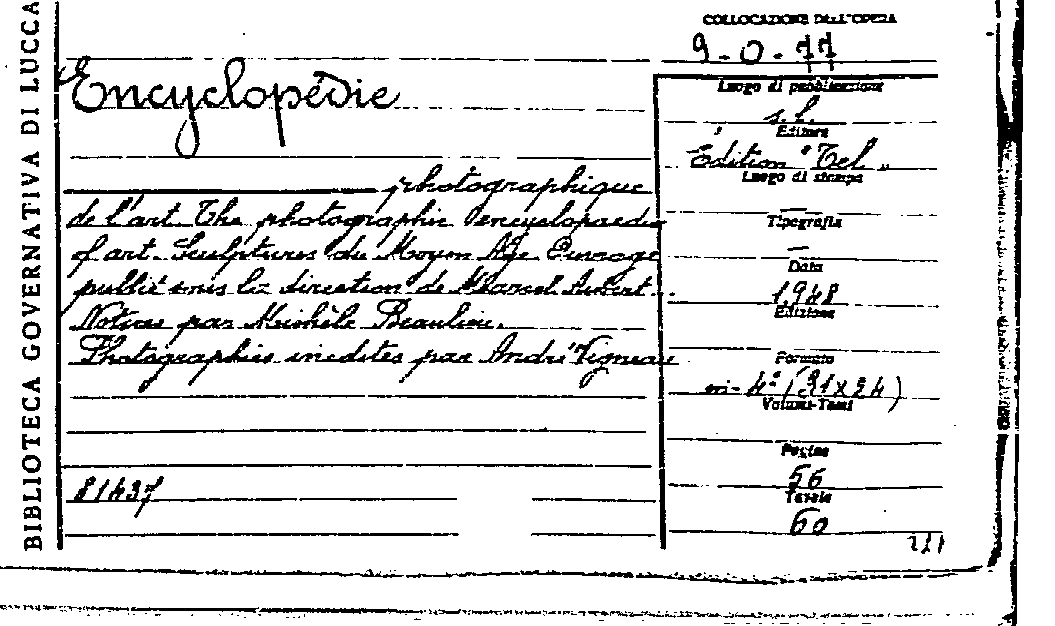 BIBLIOTECA GOVERNATIVA DI LUCCA
COLLOCAZIONE DELL'OPERA
9-0-77
Encyclopédie
photographique
de l'art. The photographic encyclopaedia
of art. Sculptures du Moyen Age. Ouvrage
publié sous la direction de Marcel Aubert.
Notices par Michèle Beaulieu.
Photographies inedites par André Vigneau
81437
Luogo di pubblicazione
s.l.
Editore
Edition "Tel"
Luogo di stampa
—
Tipografia
—
Data
1948
Edizione
Formato
in-4° (31x24)
Volumi-Tomi
Pagine
56
Tavole
60